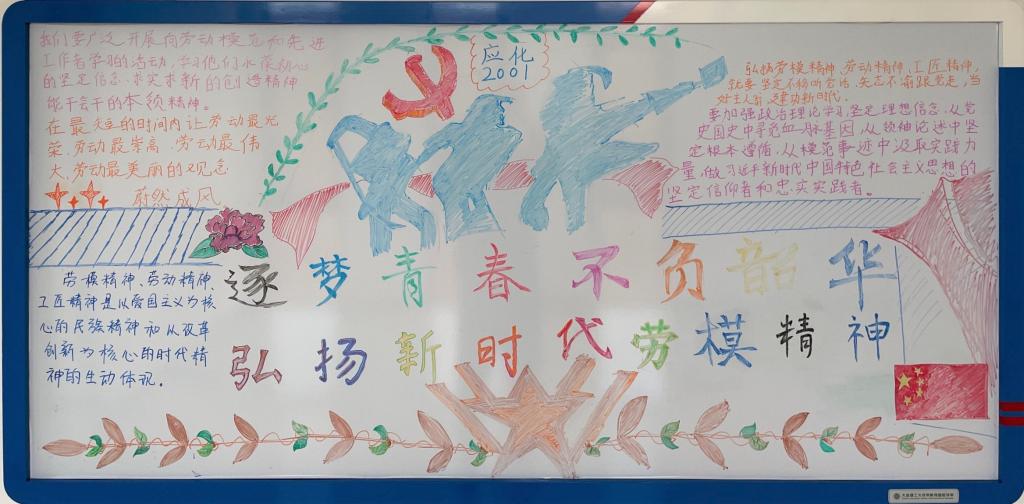 我们要广泛开展向劳动模范和先进
工作者学习的活动，学习他们
的坚定信念、求实求新的创造精神
能干会干的本领精神。
在最短的时间内让劳动最光
荣、劳动最崇高、劳动最伟
大、劳动最美丽的观念
蔚然成风
应化
2001
弘扬劳模精神，劳动精神，工匠精神，
就要坚定不移听党话，矢志不渝跟党走，当
好主人翁，建功新时代。
要加强政治理论学习，坚定理想信念，从党
史国史中寻觅血脉基因，从领袖论述中坚
定根本遵循，从模范事迹中汲取实践力
量，做习近平新时代中国特色社会主义思想的
坚定信仰者和忠实实践者。
劳模精神、劳动精神、
工匠精神是以爱国主义为核
心的民族精神和以改革
创新为核心的时代精
神的生动体现。
逐梦青春不负韶华
弘扬新时代劳模精神